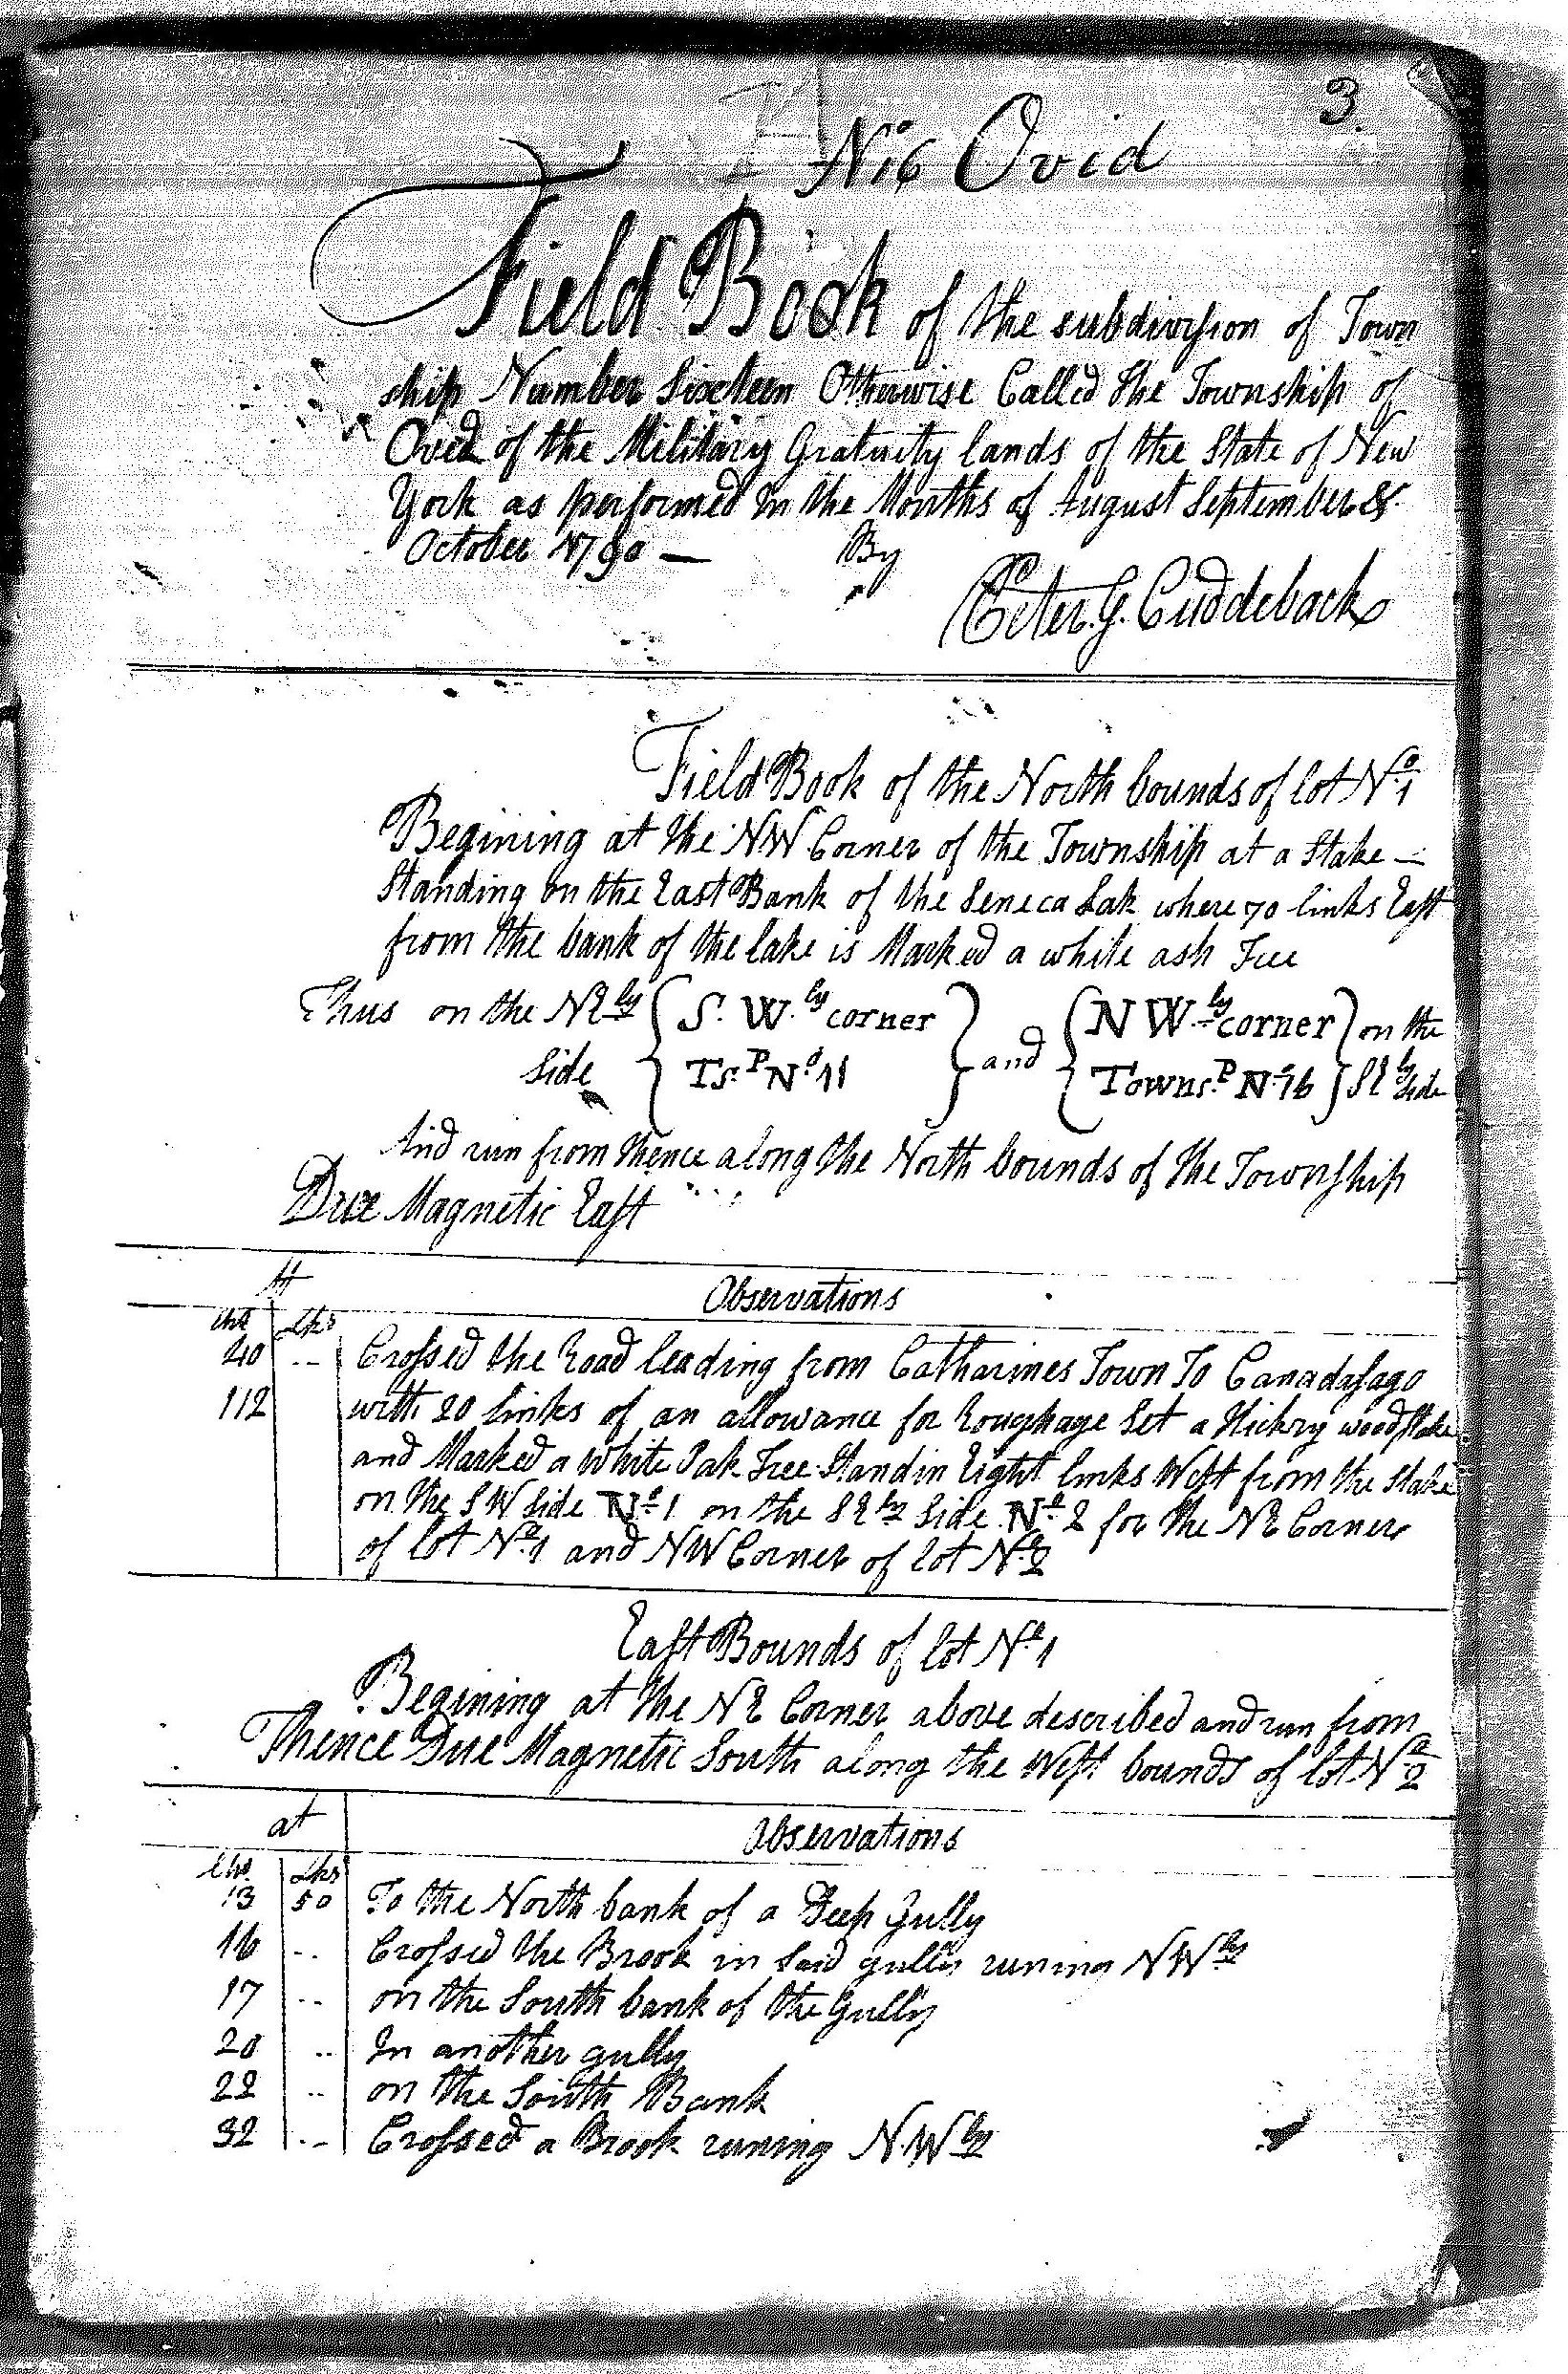 3.
No 16 Ovid
Field Book of the subdivision of Town
ship Number Sixteen Otherwise Called the Township of
Ovid of the Military Gratuity lands of the State of New
York as performed in the Months of August September &
October 1790 — By
Peter G. Cuddeback
Field Book of the North bounds of lot No 1
Begining at the NW Corner of the Township at a Stake —
Standing on the East Bank of the Seneca Lak where 70 links East
from the bank of the lake is Marked a white ash Tree
Thus on the NEly { S. W.ly corner } and { N W.ly corner } on the
Side { Ts.P No 11 } { Towns.P No 16 } SEly Side
And run from thence along the North bounds of the Township
Due Magnetic East
At Observations
chs Lks
40 .. Crossed the Road leading from Catharines Town To Canadasago
112 with 20 links of an allowance for Roughage Set a Hickry wood Stake
and Marked a White Oak Tree Standin Eight links West from the Stake
on the SW Side No 1 on the SEly Side No 2 for the NE Corner
of lot No 1 and NW Corner of lot No 2
East Bounds of lot No 1
Begining at the NE Corner above described and run from
Thence Due Magnetic South along the West bounds of lot No 2
at Observations
chs. Lks
13 50 To the North bank of a Deep Gully
16 .. Crossed the Brook in Said gully runing NWly
17 .. on the South bank of the Gully
20 .. In another gully
22 .. on the South Bank
32 .. Crossed a Brook runing NWly